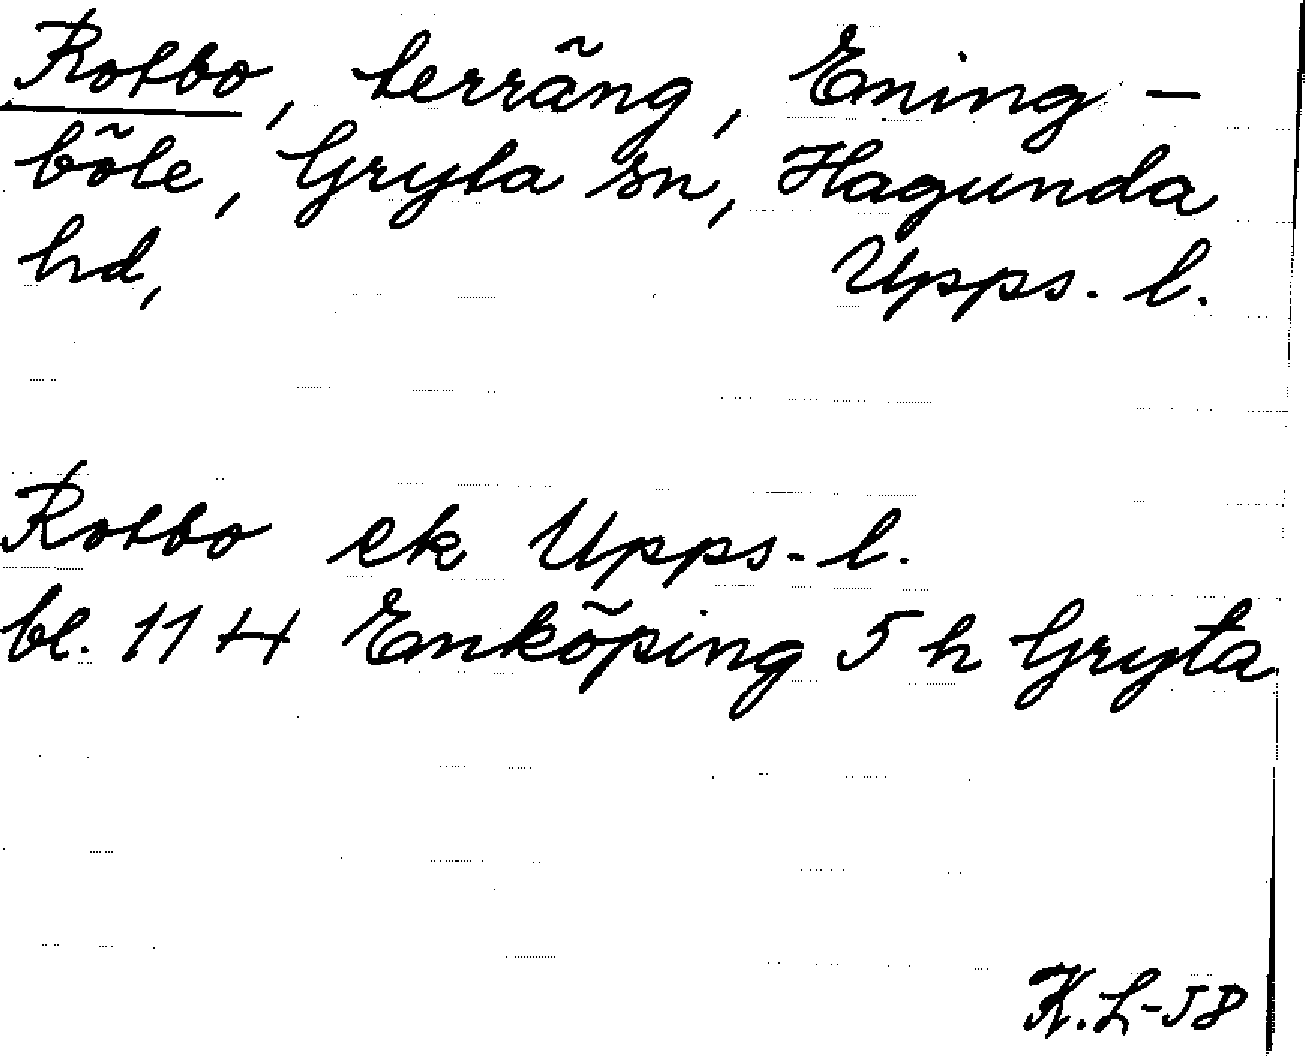 Rotbo, terräng, Ening-
böle, Gryta sn, Hagunda
hd, Upps. l.
Rotbo ek Upps. l.
bl. 114 Enköping 5 h Gryta
K.L-58